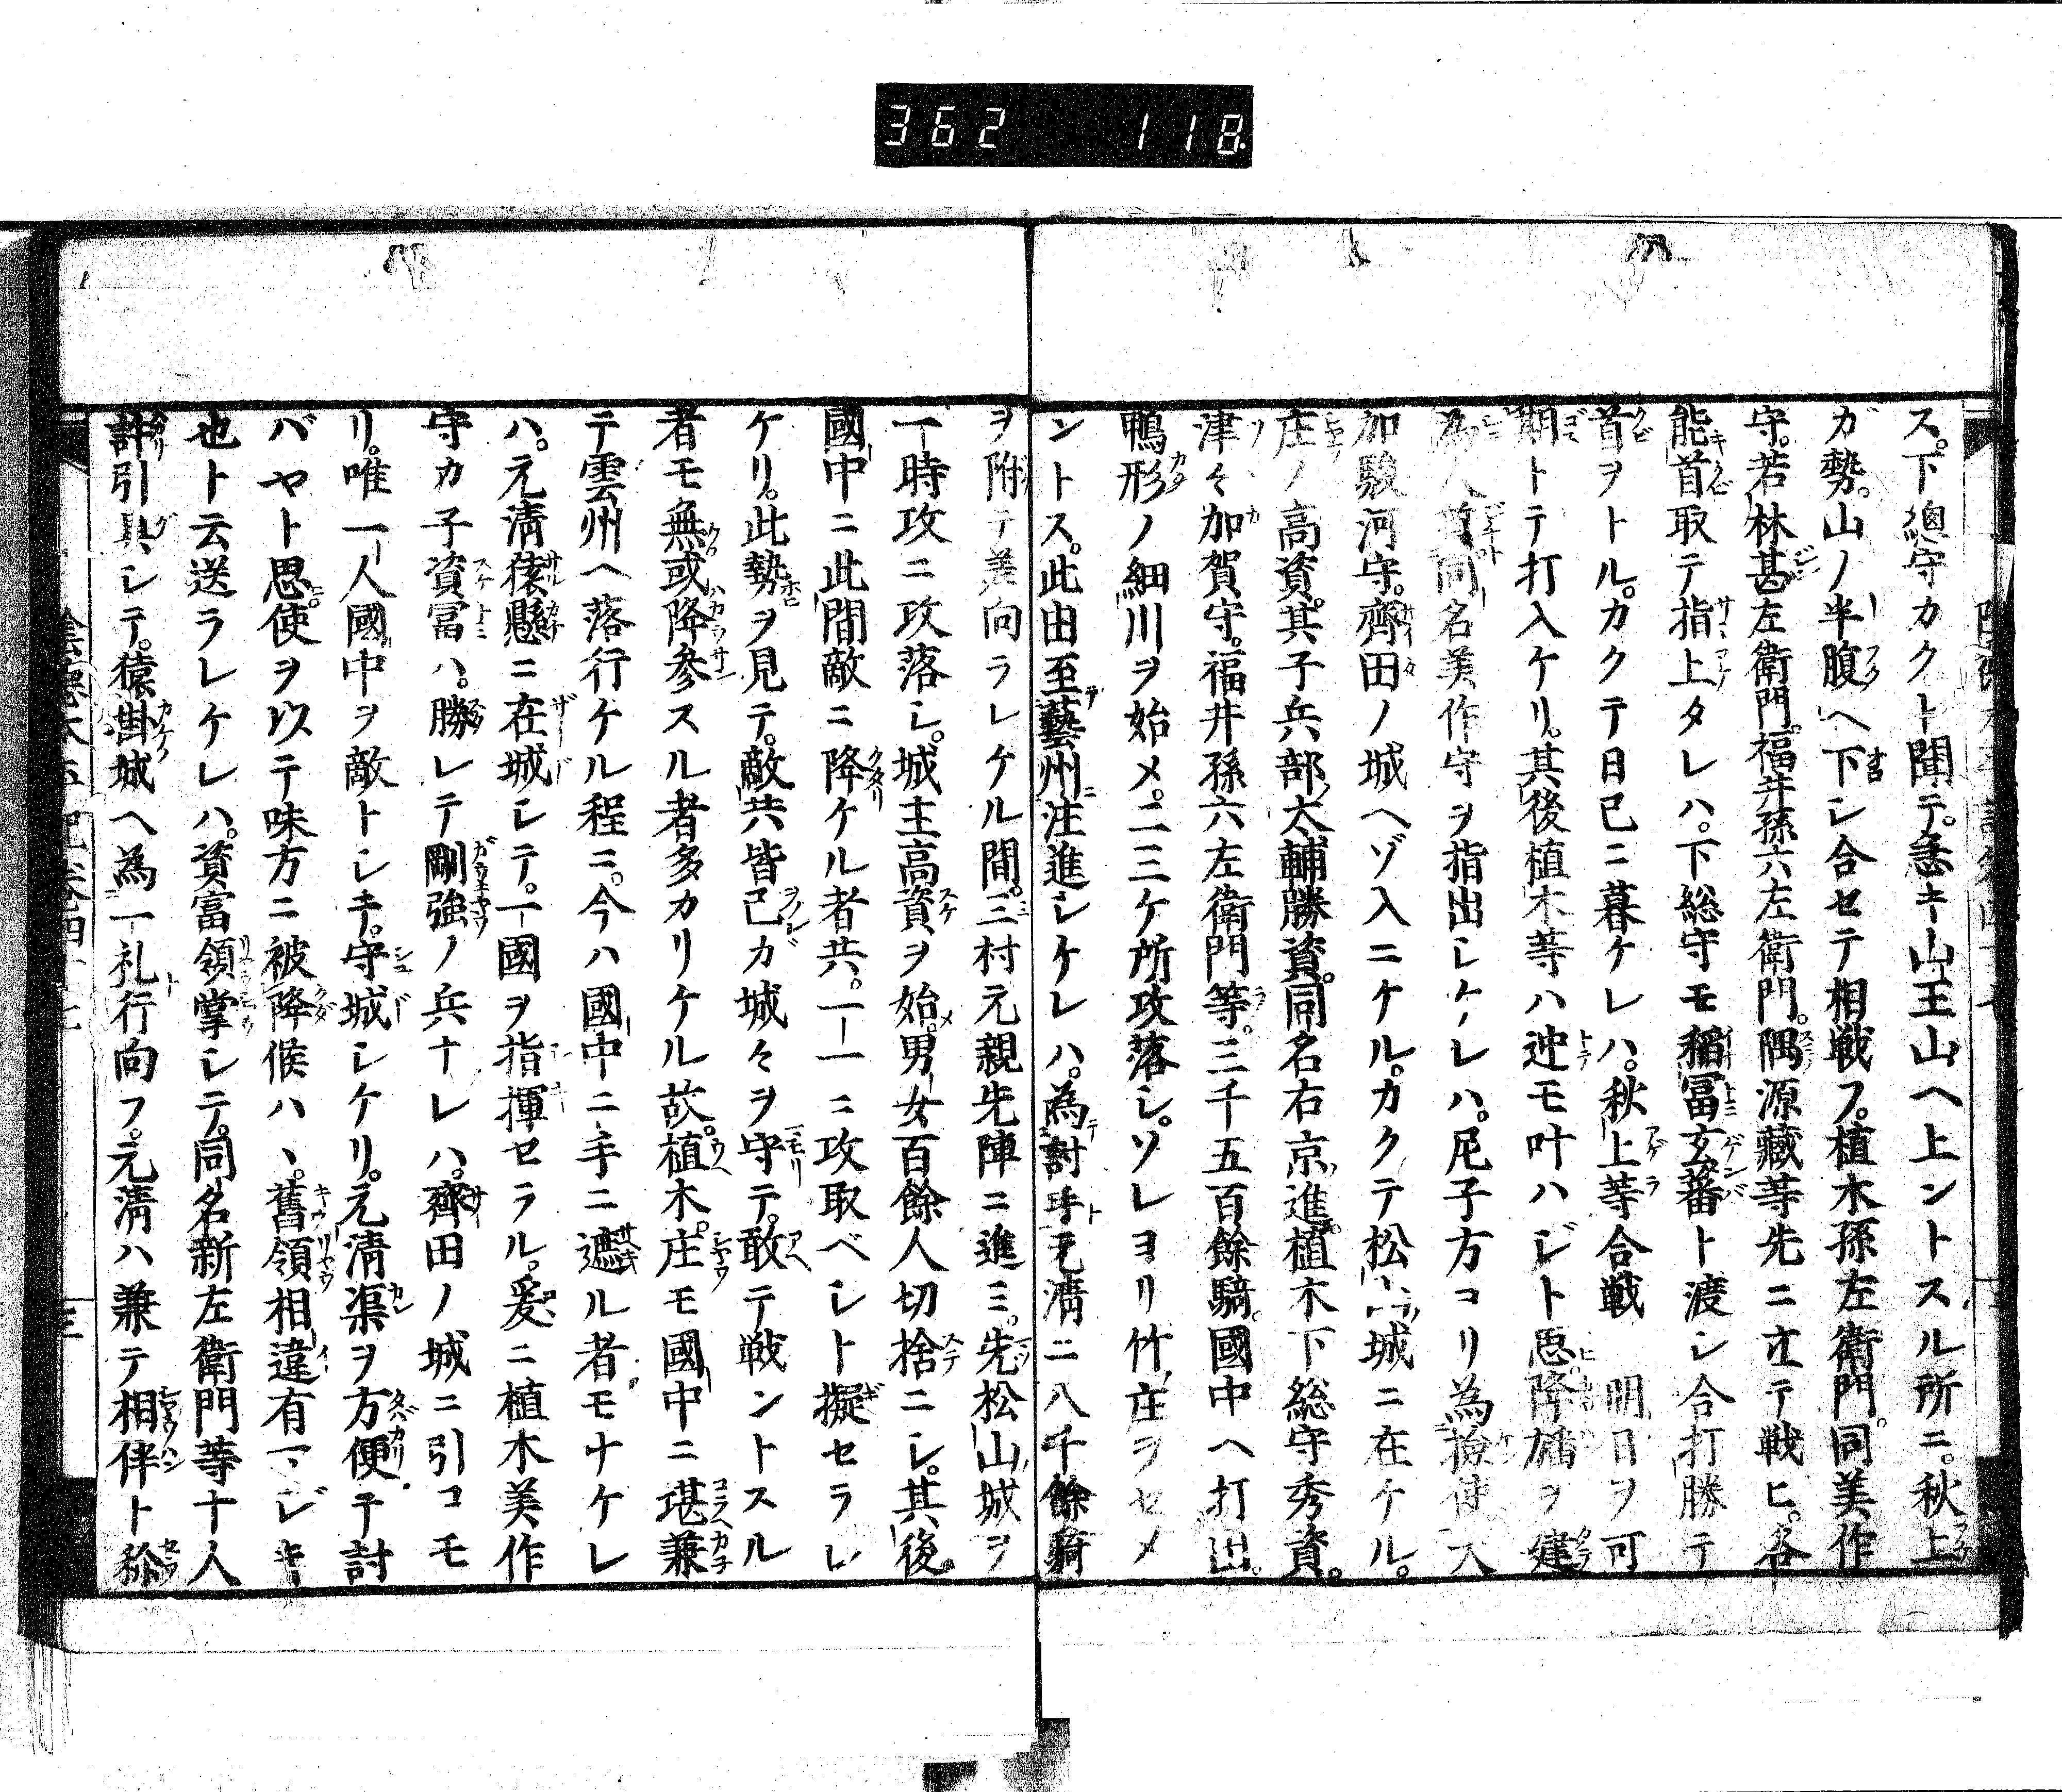 362 118
ス。下總守カクト聞テ。急キ山王山ヘ上ントスル所ニ。秋上
ガ勢。山ノ半腹ヘ下シ合セテ相戦フ。植木孫左衛門。同美作
守。若林甚左衛門。福井孫六左衛門。隅源藏等先ニ在テ戦ヒ。各
能首取テ指上タレハ。下総守モ稲冨玄蕃ト渡シ合打勝テ
首ヲトル。カクテ日已ニ暮ケレハ。秋上等合戦 明日ヲ可
期トテ打入ケリ。其後植木等ハ迚モ叶ハジト思降旙ヲ建
為人質同名美作守ヲ指出シケレハ。尼子方コリ為撿使大
加駿河守。齊田ノ城ヘゾ入ニケル。カクテ松山城ニ在ケル。
庄ノ高資。其子兵部大輔勝資。同名右京進。植木下総守秀資。
津々加賀守。福井孫六左衛門等。三千五百餘騎。國中ヘ打出。
鴨形ノ細川ヲ始メ。二三ケ所攻落シ。ソレヨリ竹庄ヲセメ
ントス。此由至藝州注進シケレハ。為討手元清ニ八千餘騎
ヲ附テ差向ラレケル間。三村元親先陣ニ進ミ。先松山城ヲ
一時攻ニ攻落シ。城主高資ヲ始。男女百餘人切捨ニシ。其後
國中ニ此間敵ニ降ケル者共。一一ニ攻取ベシト擬セラレ
ケリ。此勢ヲ見テ。敵共皆己ガ城々ヲ守テ。敢テ戦ントスル
者モ無或降参スル者多カリケル故。植木。庄モ國中ニ堪兼
テ雲州ヘ落行ケル程ニ。今ハ國中ニ手ニ遮ル者モナケレ
ハ。元清猿懸ニ在城シテ。一國ヲ指揮セラル。爰ニ植木美作
守カ子資冨ハ。勝レテ剛強ノ兵ナレハ。齊田ノ城ニ引コモ
リ。唯一人國中ヲ敵トシキ。守城シケリ。元清渠ヲ方便テ討
バヤト思使ヲ以テ味方ニ被降候ハヽ。舊領相違有マジキ
也ト云送ラレケレハ。資富領掌シテ。同名新左衛門等十人
許引具シテ。猿掛城ヘ為一礼行向フ。元清ハ兼テ相伴ト稱